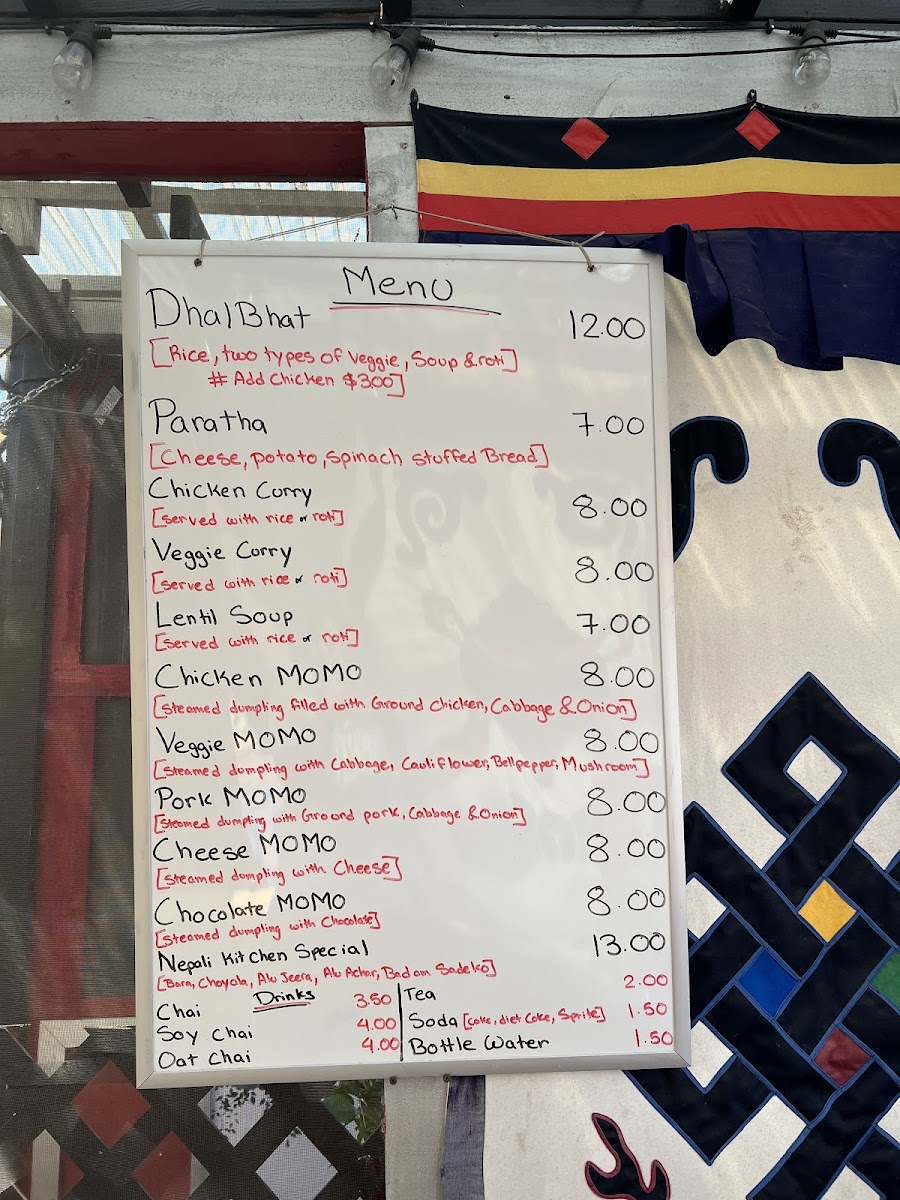 Menu
DhalBhat 12.00
[Rice, two types of veggie, Soup & roti]
# Add Chicken $300]
Paratha 7.00
[Cheese, potato, spinach stuffed Bread]
Chicken Curry 8.00
[served with rice or roti]
Veggie Curry 8.00
[served with rice or roti]
Lentil Soup 7.00
[served with rice or roti]
Chicken MOMO 8.00
[steamed dumpling filled with Ground chicken, Cabbage & Onion]
Veggie MOMO 8.00
[steamed dumping with Cabbage, Cauliflower, Bellpepper, Mushroom]
Pork MOMO 8.00
[steamed dumpling with Ground pork, Cabbage & Onion]
Cheese MOMO 8.00
[steamed dumpling with Cheese]
Chocolate MOMO 8.00
[steamed dumpling with Chocolate]
Nepali Kitchen Special 13.00
[Bara, Choyola, Alu Jeera, Alu Achar, Badam Sadeko]
Drinks
Chai 3.50
Soy Chai 4.00
Oat Chai 4.00
Tea 2.00
Soda [Coke, diet Coke, Sprite] 1.50
Bottle Water 1.50